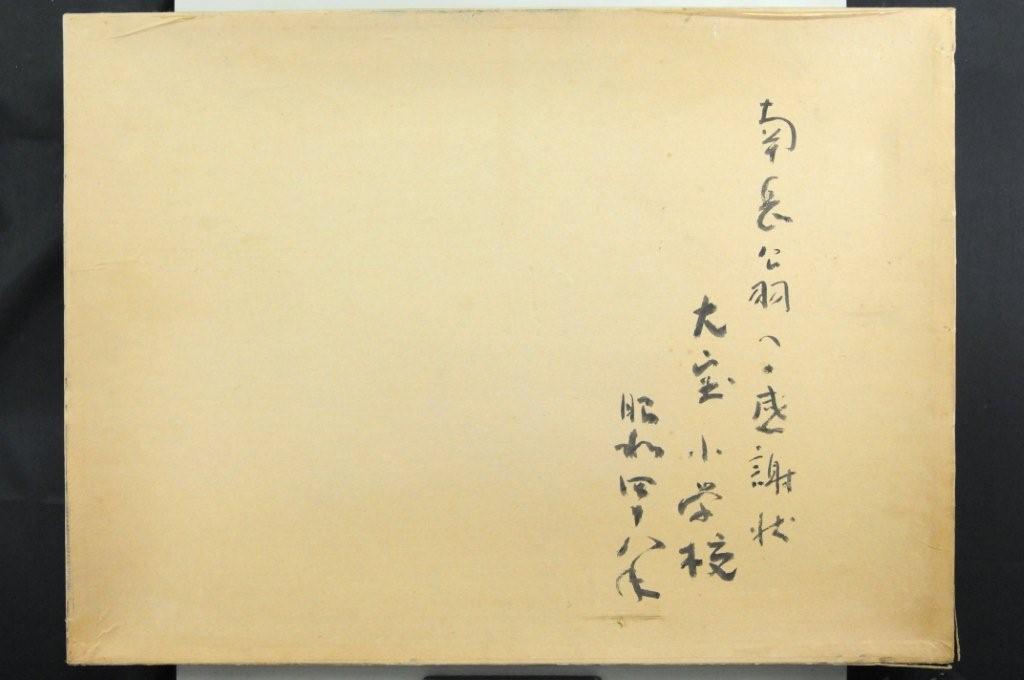 南岳翁への感謝状
大宝小学校
昭和四十八年